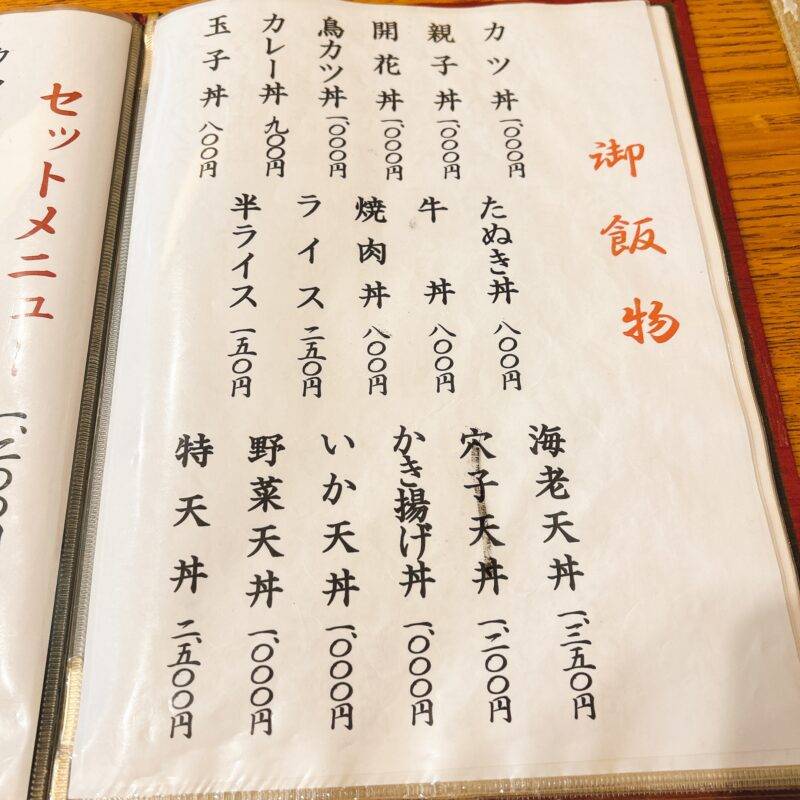 御飯物
カツ丼 一、〇〇〇円
親子丼 一、〇〇〇円
開花丼 一、〇〇〇円
鳥カツ丼 一、〇〇〇円
カレー丼 九〇〇円
玉子丼 八〇〇円
たぬき丼 八〇〇円
牛丼 八〇〇円
焼肉丼 八〇〇円
ライス 二五〇円
半ライス 一五〇円
海老天丼 一、三五〇円
穴子天丼 一、二〇〇円
かき揚げ丼 一、〇〇〇円
いか天丼 一、〇〇〇円
野菜天丼 一、〇〇〇円
特天丼 二、五〇〇円
セットメニュー